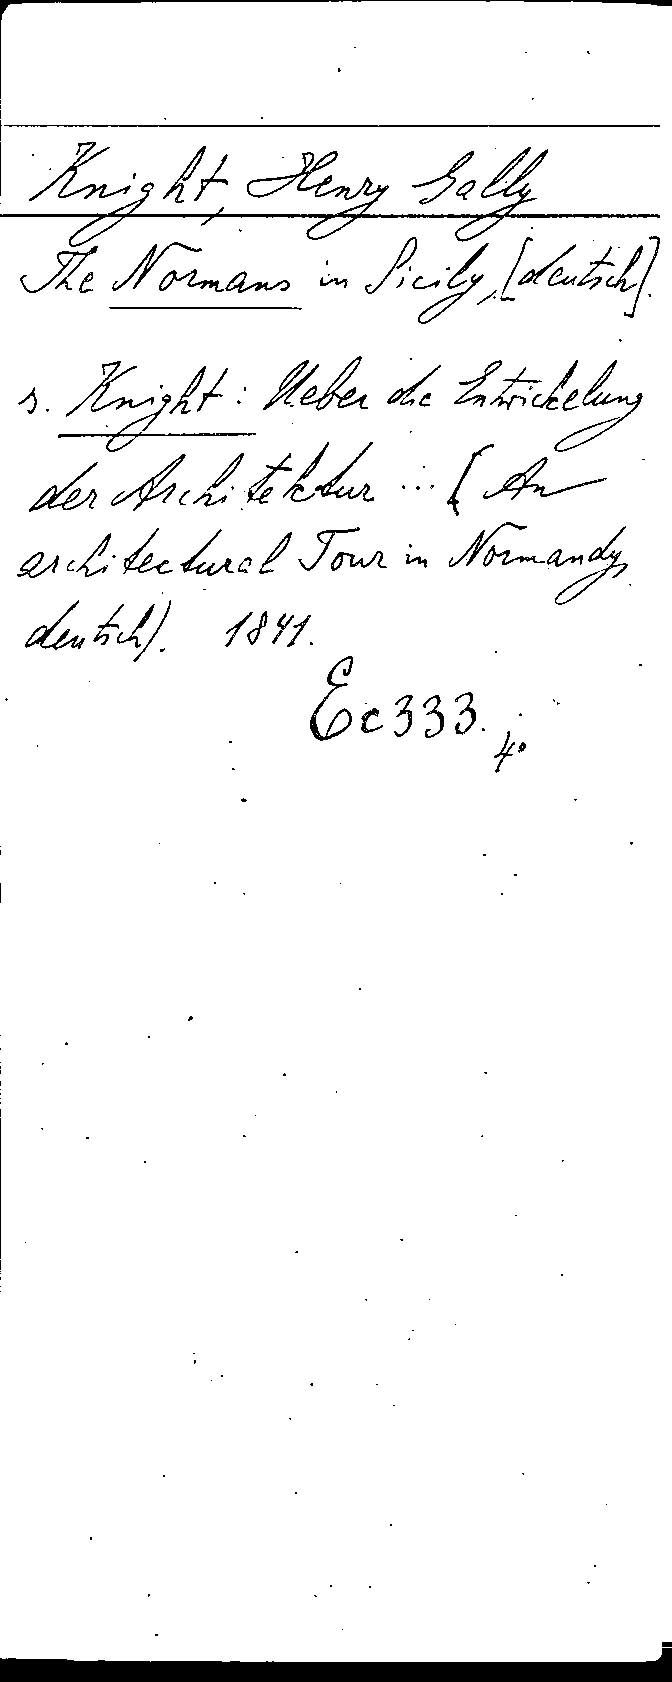 Knight, Henry Gally
The Normans in Sicily, [deutsch].
s. Knight: Ueber die Entwickelung
der Architektur ... [An
architectural Tour in Normandy,
deutsch]. 1841.
Ec 333.
4°